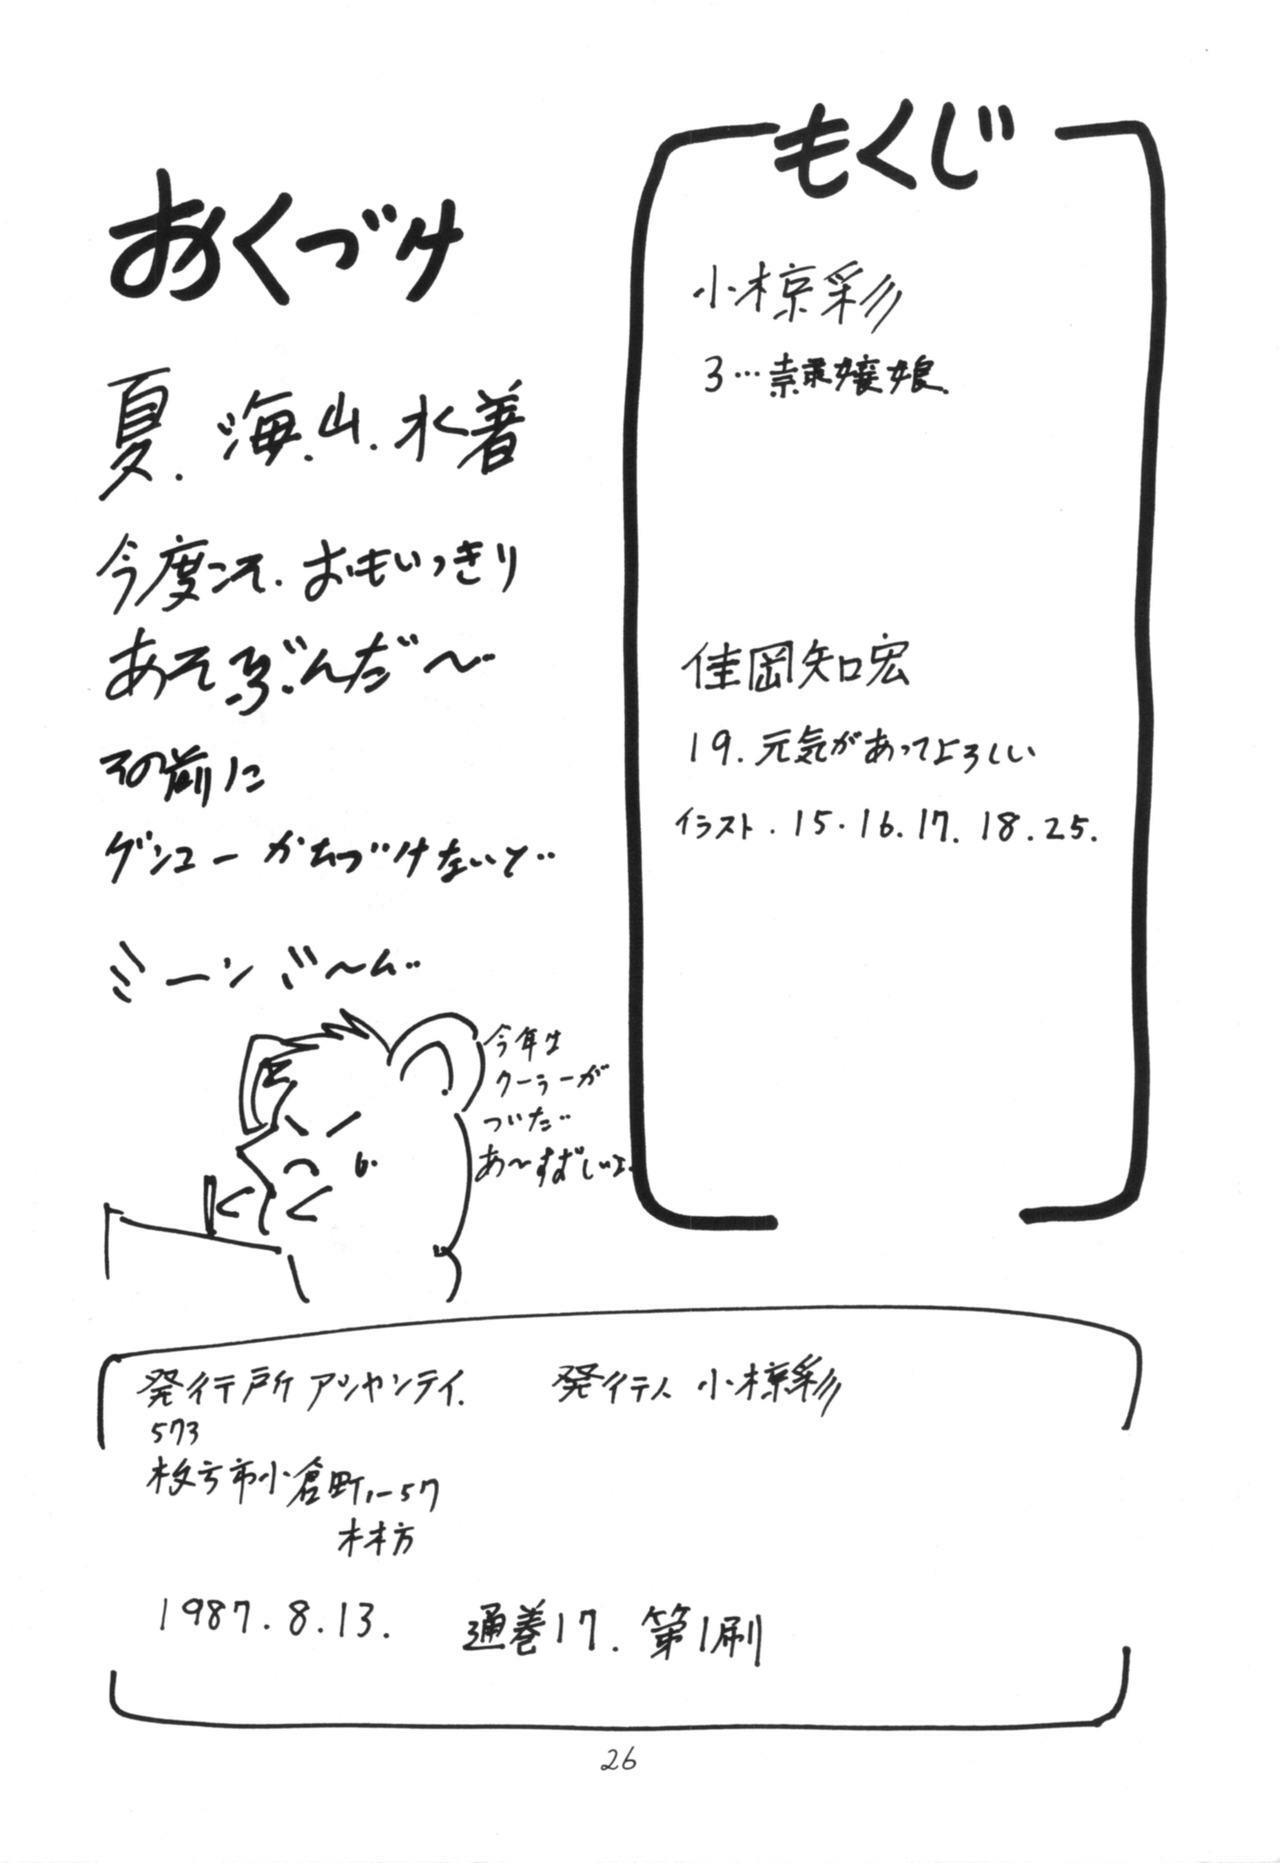 もくじ
小椋彩
3…素裸嬢娘.
佳岡知宏
19.元気があってよろしい
イラスト.15.16.17.18.25.
おくづけ
夏.海.山.水着
今度こそ.おもいっきり
あそぶんだ〜
その前に
ゲンコーかたづけないと
ミーンミ〜ム
今年は
クーラーが
ついた
あ〜すずしいよ
発行所アシャンティ. 発行人 小椋彩
573
枚方市小倉町1-57
林方
1987.8.13. 通巻17.第1刷
26